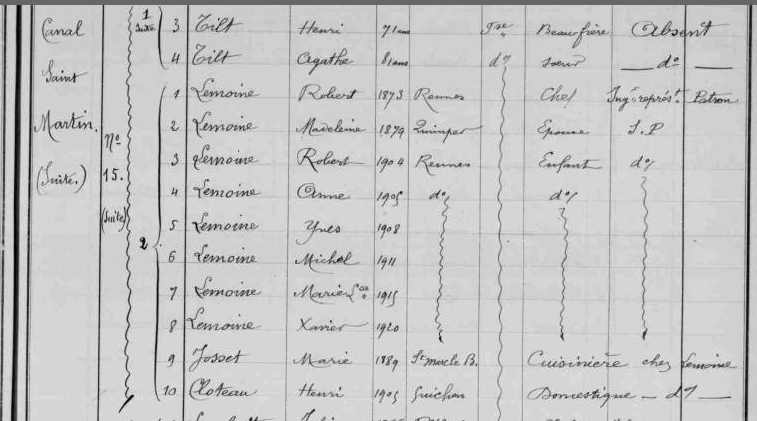 Canal 1 Suite 3 Tilt Henri 71 ans Fse Beau frère Absent
4 Tilt Agathe 81 ans do soeur do
Saint
1 Lemoine Robert 1873 Rennes Chef Ingr représt. Patron
Martin. No 2 Lemoine Madeleine 1879 Quimper Epouse S.P
3 Lemoine Robert 1904 Rennes Enfant do
(Suite.) 15. 4 Lemoine Anne 1905 do do
(Suite) 5 Lemoine Yves 1908
2
6 Lemoine Michel 1911
7 Lemoine Marie 1915
8 Lemoine Xavier 1920
9 Josset Marie 1889 St. B. Cuisinière chez Lemoine
10 Cloteau Henri 1905 Guichen Domestique do